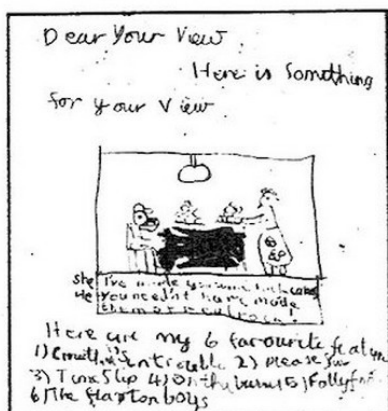 Dear Your View
Here is Something
for your View
She I've made you some rock cakes
He you needn't have made
them of real rock!
Here are my 6 favourite
1) in trouble 2) please Sir
3) Time Slip 4) On the 5)
6) The Flaxton boys